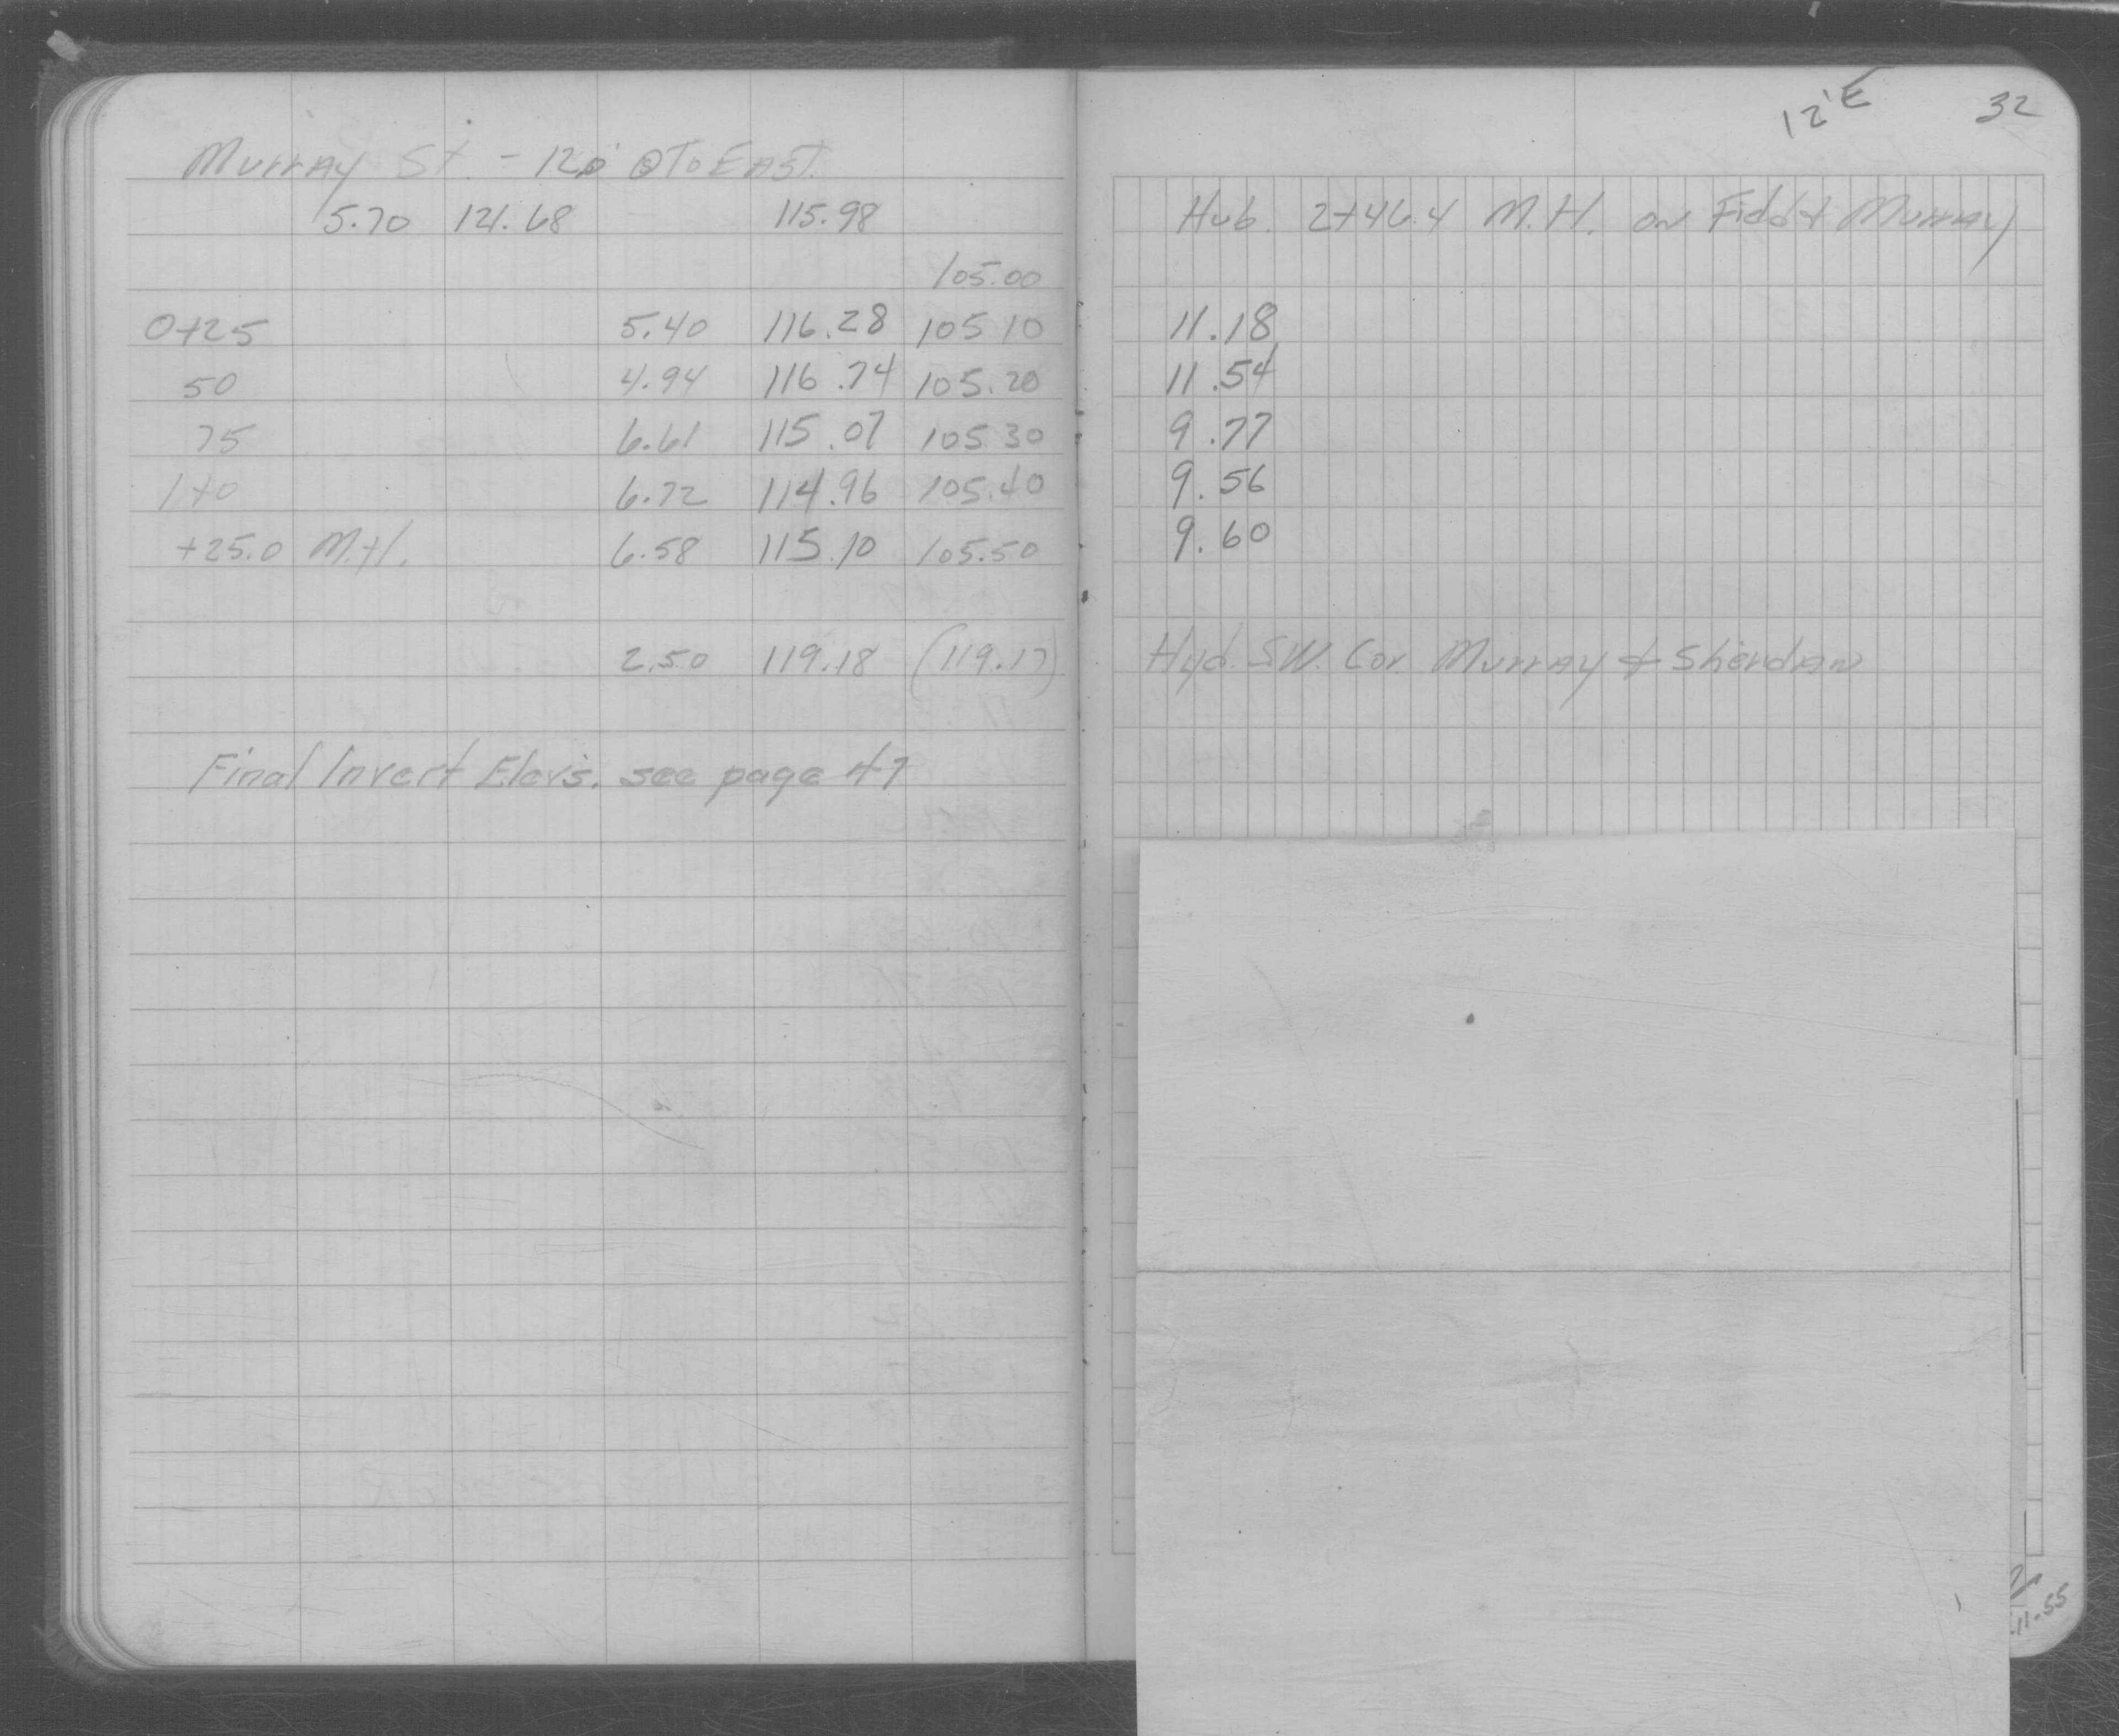 Murray St. - 12' @ To EAST.
5.70 121.68 115.98
105.00
0+25 5.40 116.28 105.10
50 4.94 116.74 105.20
75 6.61 115.07 105.30
1+0 6.72 114.96 105.40
+25.0 M.H. 6.58 115.10 105.50
2.50 119.18 (119.17)
Final Invert Elev's. see page 47
12'E 32
Hub. 2+46.4 M.H. on Field & Murray
11.18
11.54
9.77
9.56
9.60
Hyd. S.W. Cor. Murray & Sheridan
11.55